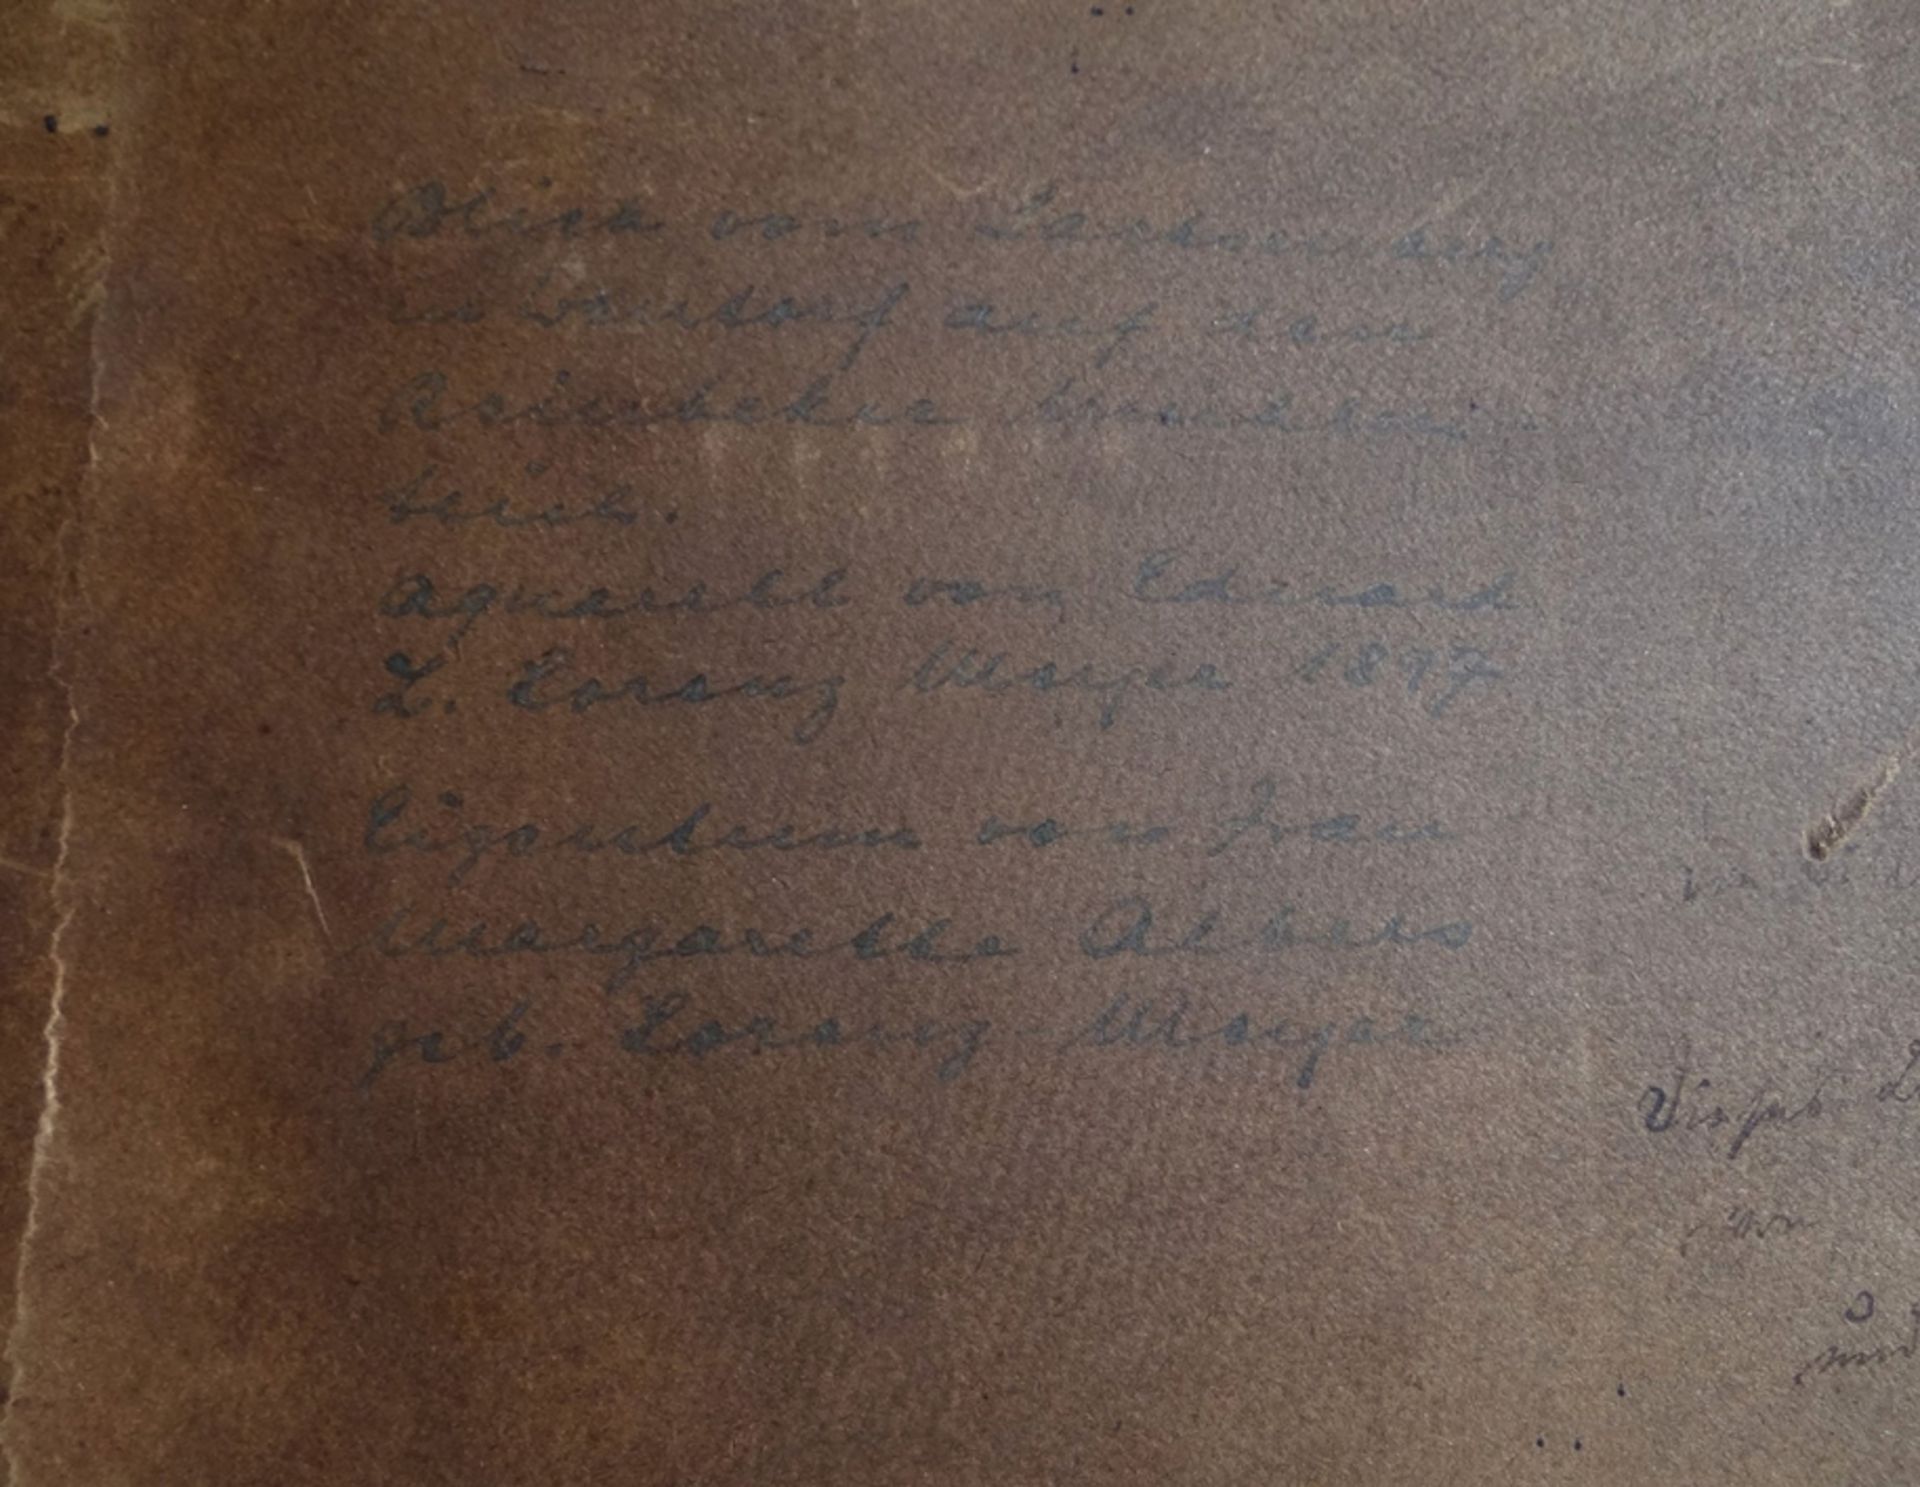 Blick vom Lachsenberg
in Wentorf auf den
Reinbeker Mühlen-
teich.
Aquarell von Eduard
L. Lorenz Meyer 1897
Eigentum von Frau
Margarethe Albers
geb. Lorenz-Meyer